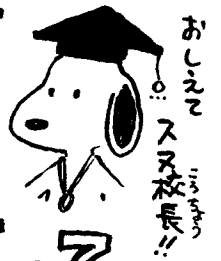 おしえて
スヌ校長!!
こうちょう